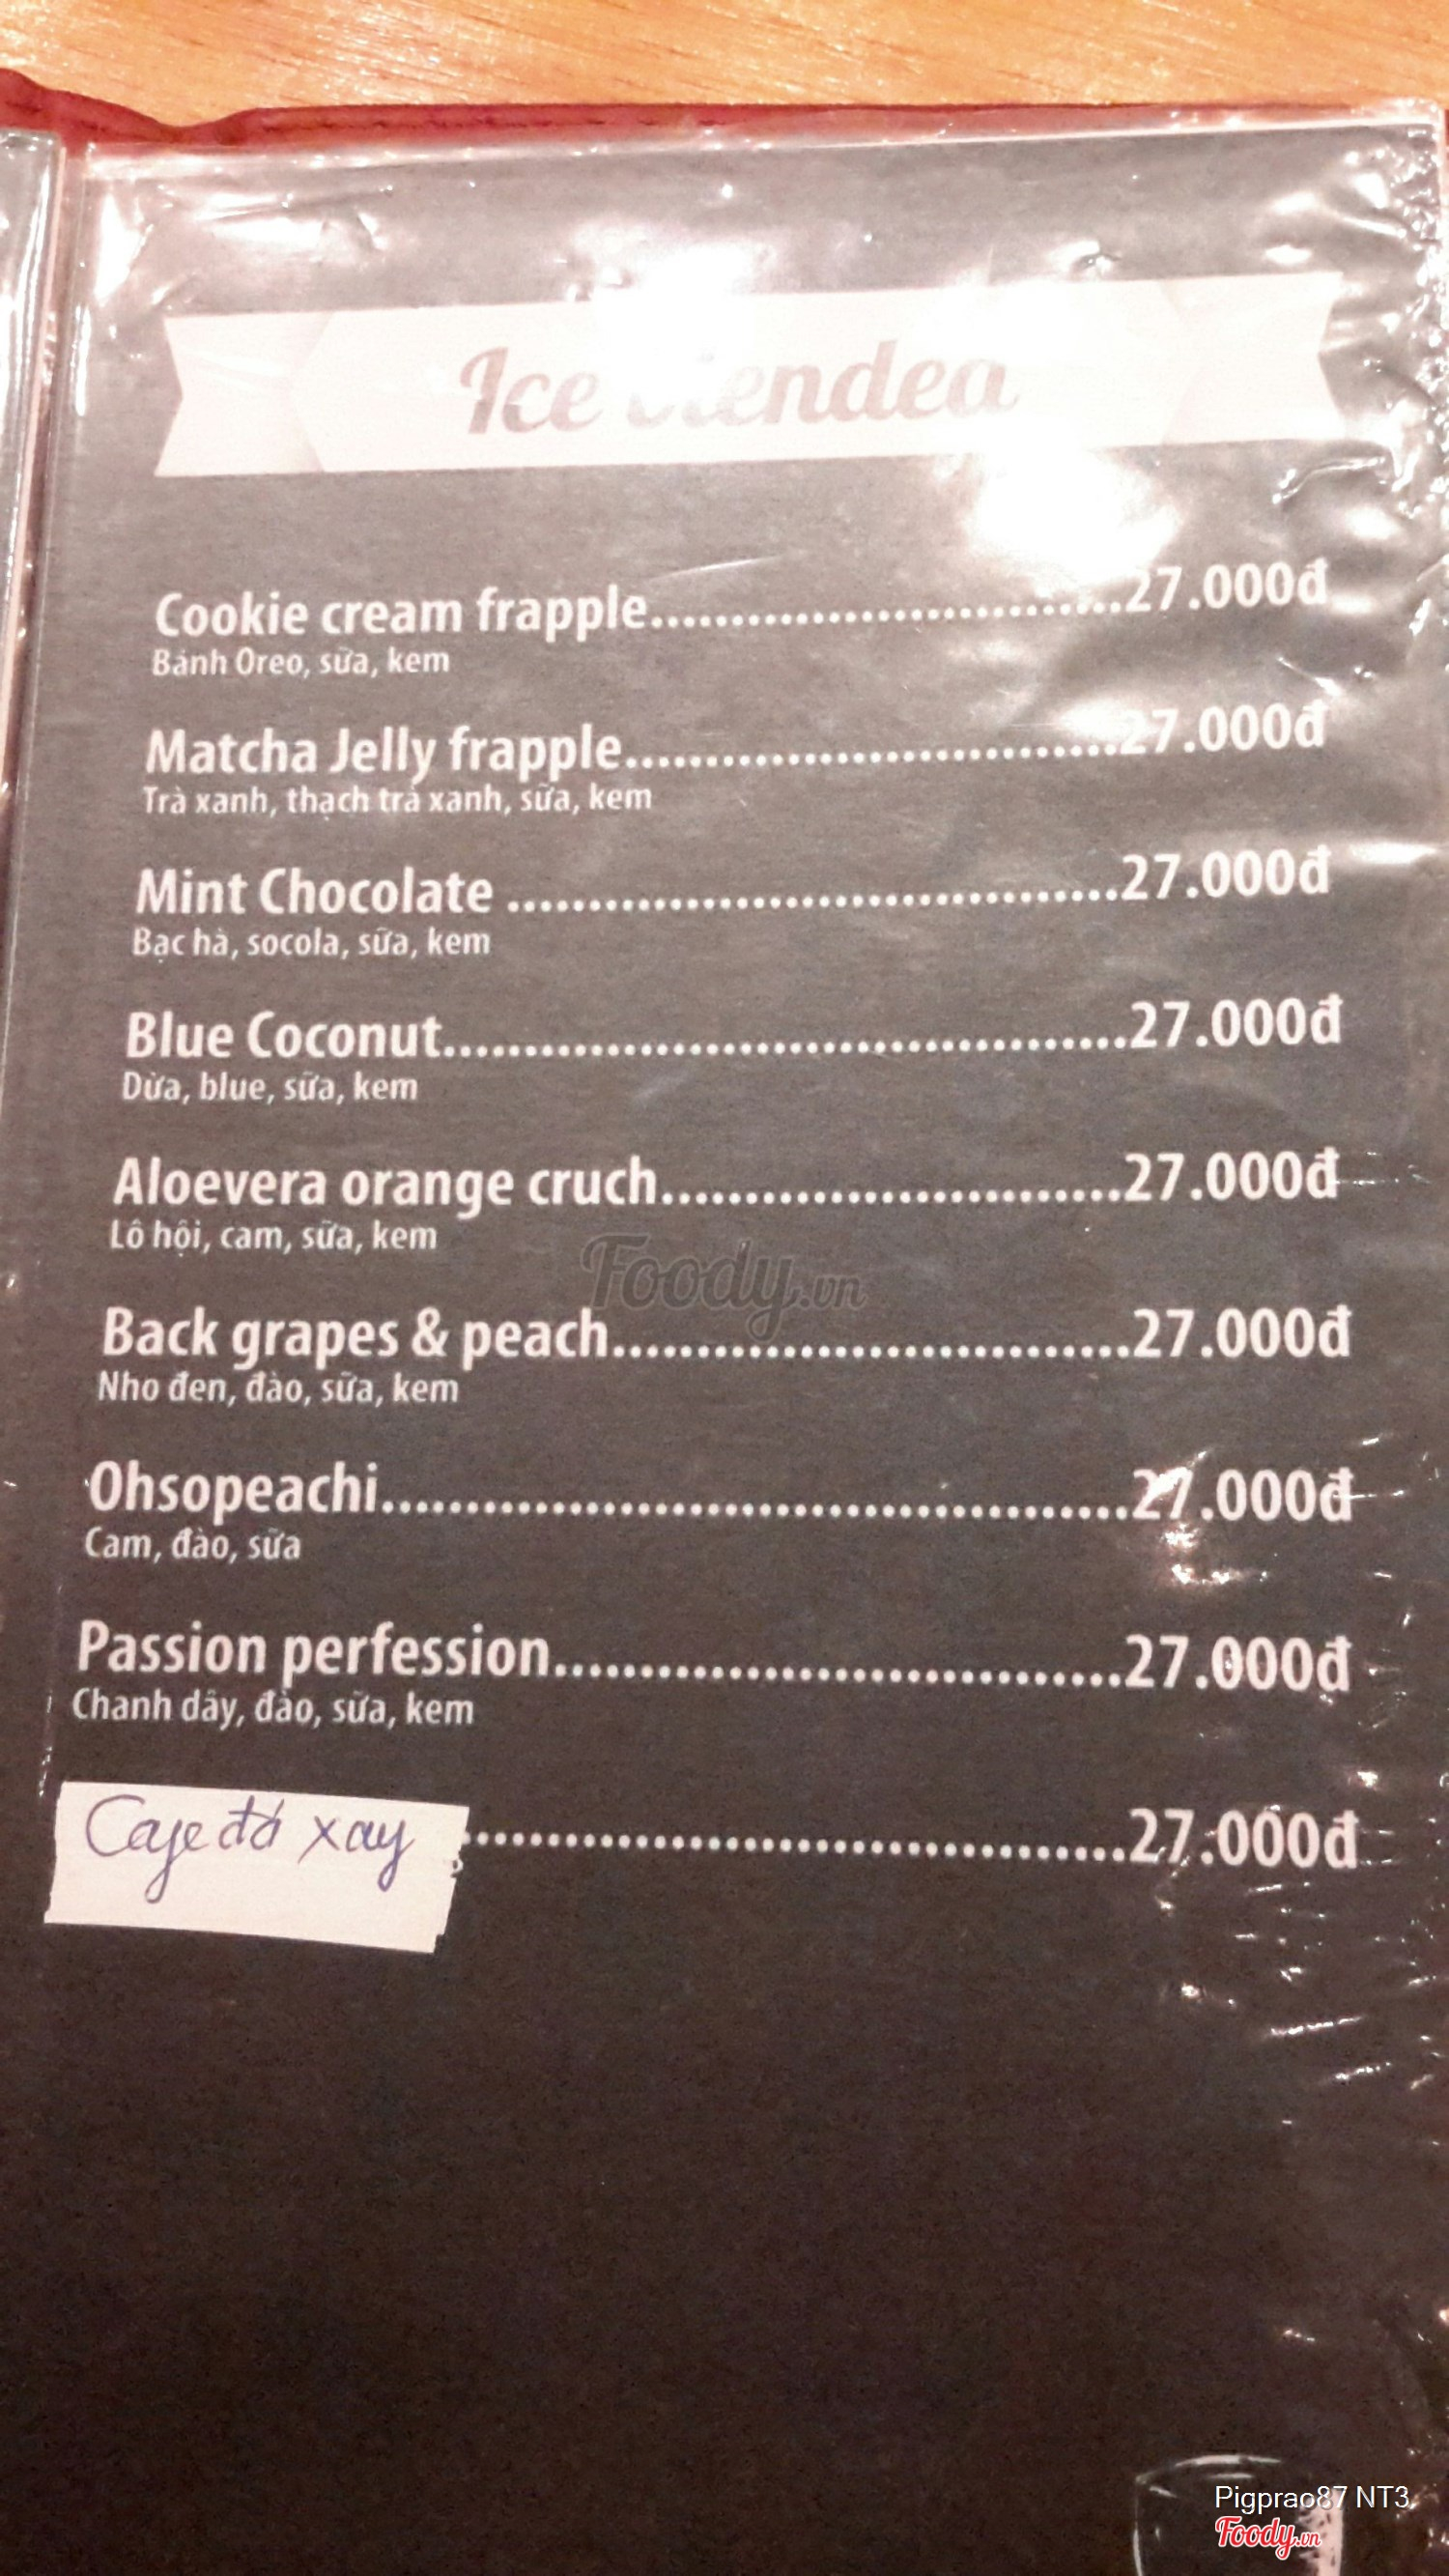 Ice blended
Cookie cream frapple..............................27.000đ
Bánh Oreo, sữa, kem
Matcha Jelly frapple..............................27.000đ
Trà xanh, thạch trà xanh, sữa, kem
Mint Chocolate ......................................27.000đ
Bạc hà, socola, sữa, kem
Blue Coconut..........................................27.000đ
Dừa, blue, sữa, kem
Aloevera orange cruch............................27.000đ
Lô hội, cam, sữa, kem
Foody.vn
Back grapes & peach...............................27.000đ
Nho đen, đào, sữa, kem
Ohsopeachi.............................................27.000đ
Cam, đào, sữa
Passion perfession..................................27.000đ
Chanh dây, đào, sữa, kem
Cafe đá xay ........................................27.000đ
Pigprao87 NT3
Foody.vn